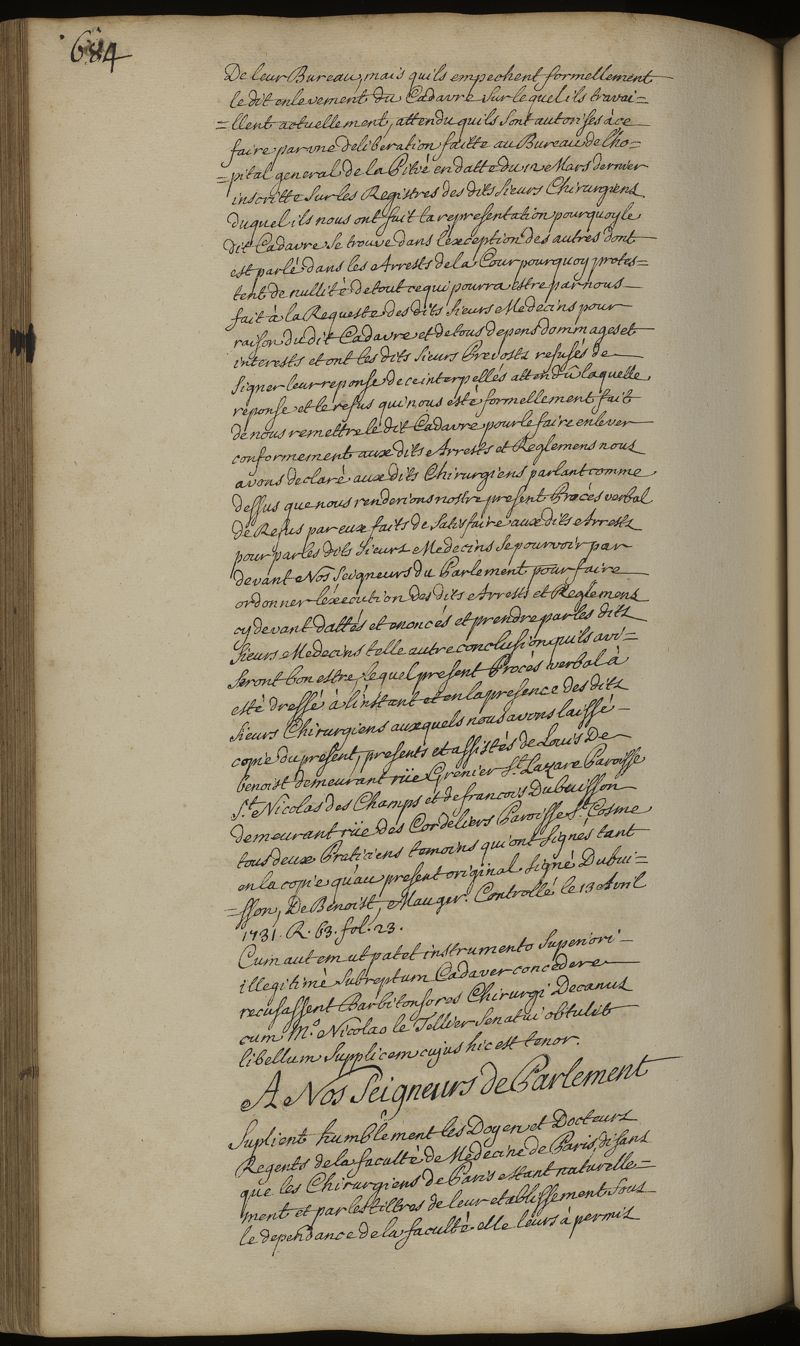 684
De leur Bureau, mais quils empechent formellement
le dit enlevement du Cadavre sur lequel ils travai=
=llent actuellement, attendu quils sont autorisés à ce
faire par une deliberation faitte au Bureau de l'ho=
=pital general de la Pitié en datte du 12 Mars dernier
inscritte sur les Registres des dits Sieurs Chirurgiens
duquel ils nous ont fait la representation pourquoy le
dit Cadavre se trouve dans l'exception des autres dont
est parlé dans les Arrests de la Cour pourquoy protes=
tent de nullité de tout ce qui pourra estre par nous
fait à la Requeste des dits Sieurs Medecins pour
raison du dit Cadavre et de tous depens dommages et
interests et ont les dits Sieurs Prevosts refusés de
signer leur reponse de ce interpellés attendû laquelle
réponse et le refus qui nous esté formellement fait
de nous remettre le dit Cadavre pour le faire enlever
conformement aux dits Arrests et Reglemens nous
avons declaré aux dits Chirurgiens parlant comme
dessus que nous renderions nostre present Procés verbal
de Refus par eux faits de satisfaire aux dits Arrests
pour par les dits Sieurs Medecins se pourvoir par
devant Nos Seigneurs du Parlement pour faire
ordonner l'éxecution des dits Arrests et Reglemens
cy devant dattés et enoncés et prendre par les dits
Sieurs Medecins telle autre conclusion qu'ils avi=
seront bon estre, lequel present Procés verbal à
esté dressé à l'instant et en la presence des dits
Sieurs Chirurgiens auxquels nous avons laissé
copie du present, presents et assistés de Louis De
benoist demeurant rüe Grenier St. Lazare Paroisse
St. Nicolas des Champs et de francois Dubuisson
demeurant rüe des Cordeliers Paroisse St. Cosme
tous deux Praticiens temoins qui ont signés tant
en la copie qu'au present original signé Dubui=
=sson, De Benoist, Mauger. Controllé le 13 Avril
1731. R. 63. fol. 23.
Cum autem ut patet instrumento superiori
illegitimè subreptum Cadaver concedere
recusassent Barbitonsores Chirurgi Decanus
cum Mo. Nicolao le Tellier Senatui obtulit
libellum supplicem cujus hic est tenor.
A Nos Seigneurs de Parlement
Suplient humblement les Doyen et Docteurs
Regents de la faculté de Medecine de Paris, disans
que les Chirurgiens de Paris estant naturelle=
ment et par les tiltres de leur etablissement sous
le dependance de la faculté. elle leurs à permis